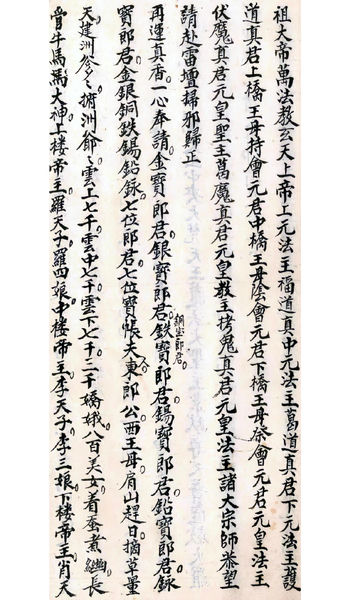 祖大帝萬法教玄天上帝上元法主福道真中元法主葛道真君下元法主護
道真君上橋王母持會元君中橋王母陰會元君下橋王母祭會元君元皇法主
伏魔真君元皇聖主萬魔真君元皇教主拷鬼真君元皇法主諸大宗師恭望
請赴雷壇掃邪歸正
再運真香一心奉請金寶郎君銀寶郎君鉄寶郎君錫寶郎君鉛寶郎君銾
銅寶郎君
寶郎君金銀銅鉄錫鉛銾七位郎君七位寶帳大東郎公西王母肩山趕日摘草量
天建洲爺爺擄洲爺爺雲上七千雲中七千雲下七千三千嬌娥八百美女着蚕煮繭長
曾牛馬大神上楼帝主羅天子羅四娘中楼帝主李天子李三娘下楼帝主肖天